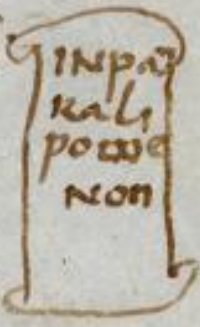 INpa
Kali
pome
NON